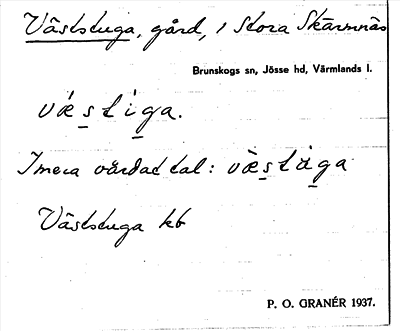 Väststuga, gård, i Stora Skärmnäs
Brunskogs sn, Jösse hd, Värmlands l.
væ̀stiga.
I mera vårdat tal: væ̀stàga
Väststuga kb
P. O. GRANÉR 1937.